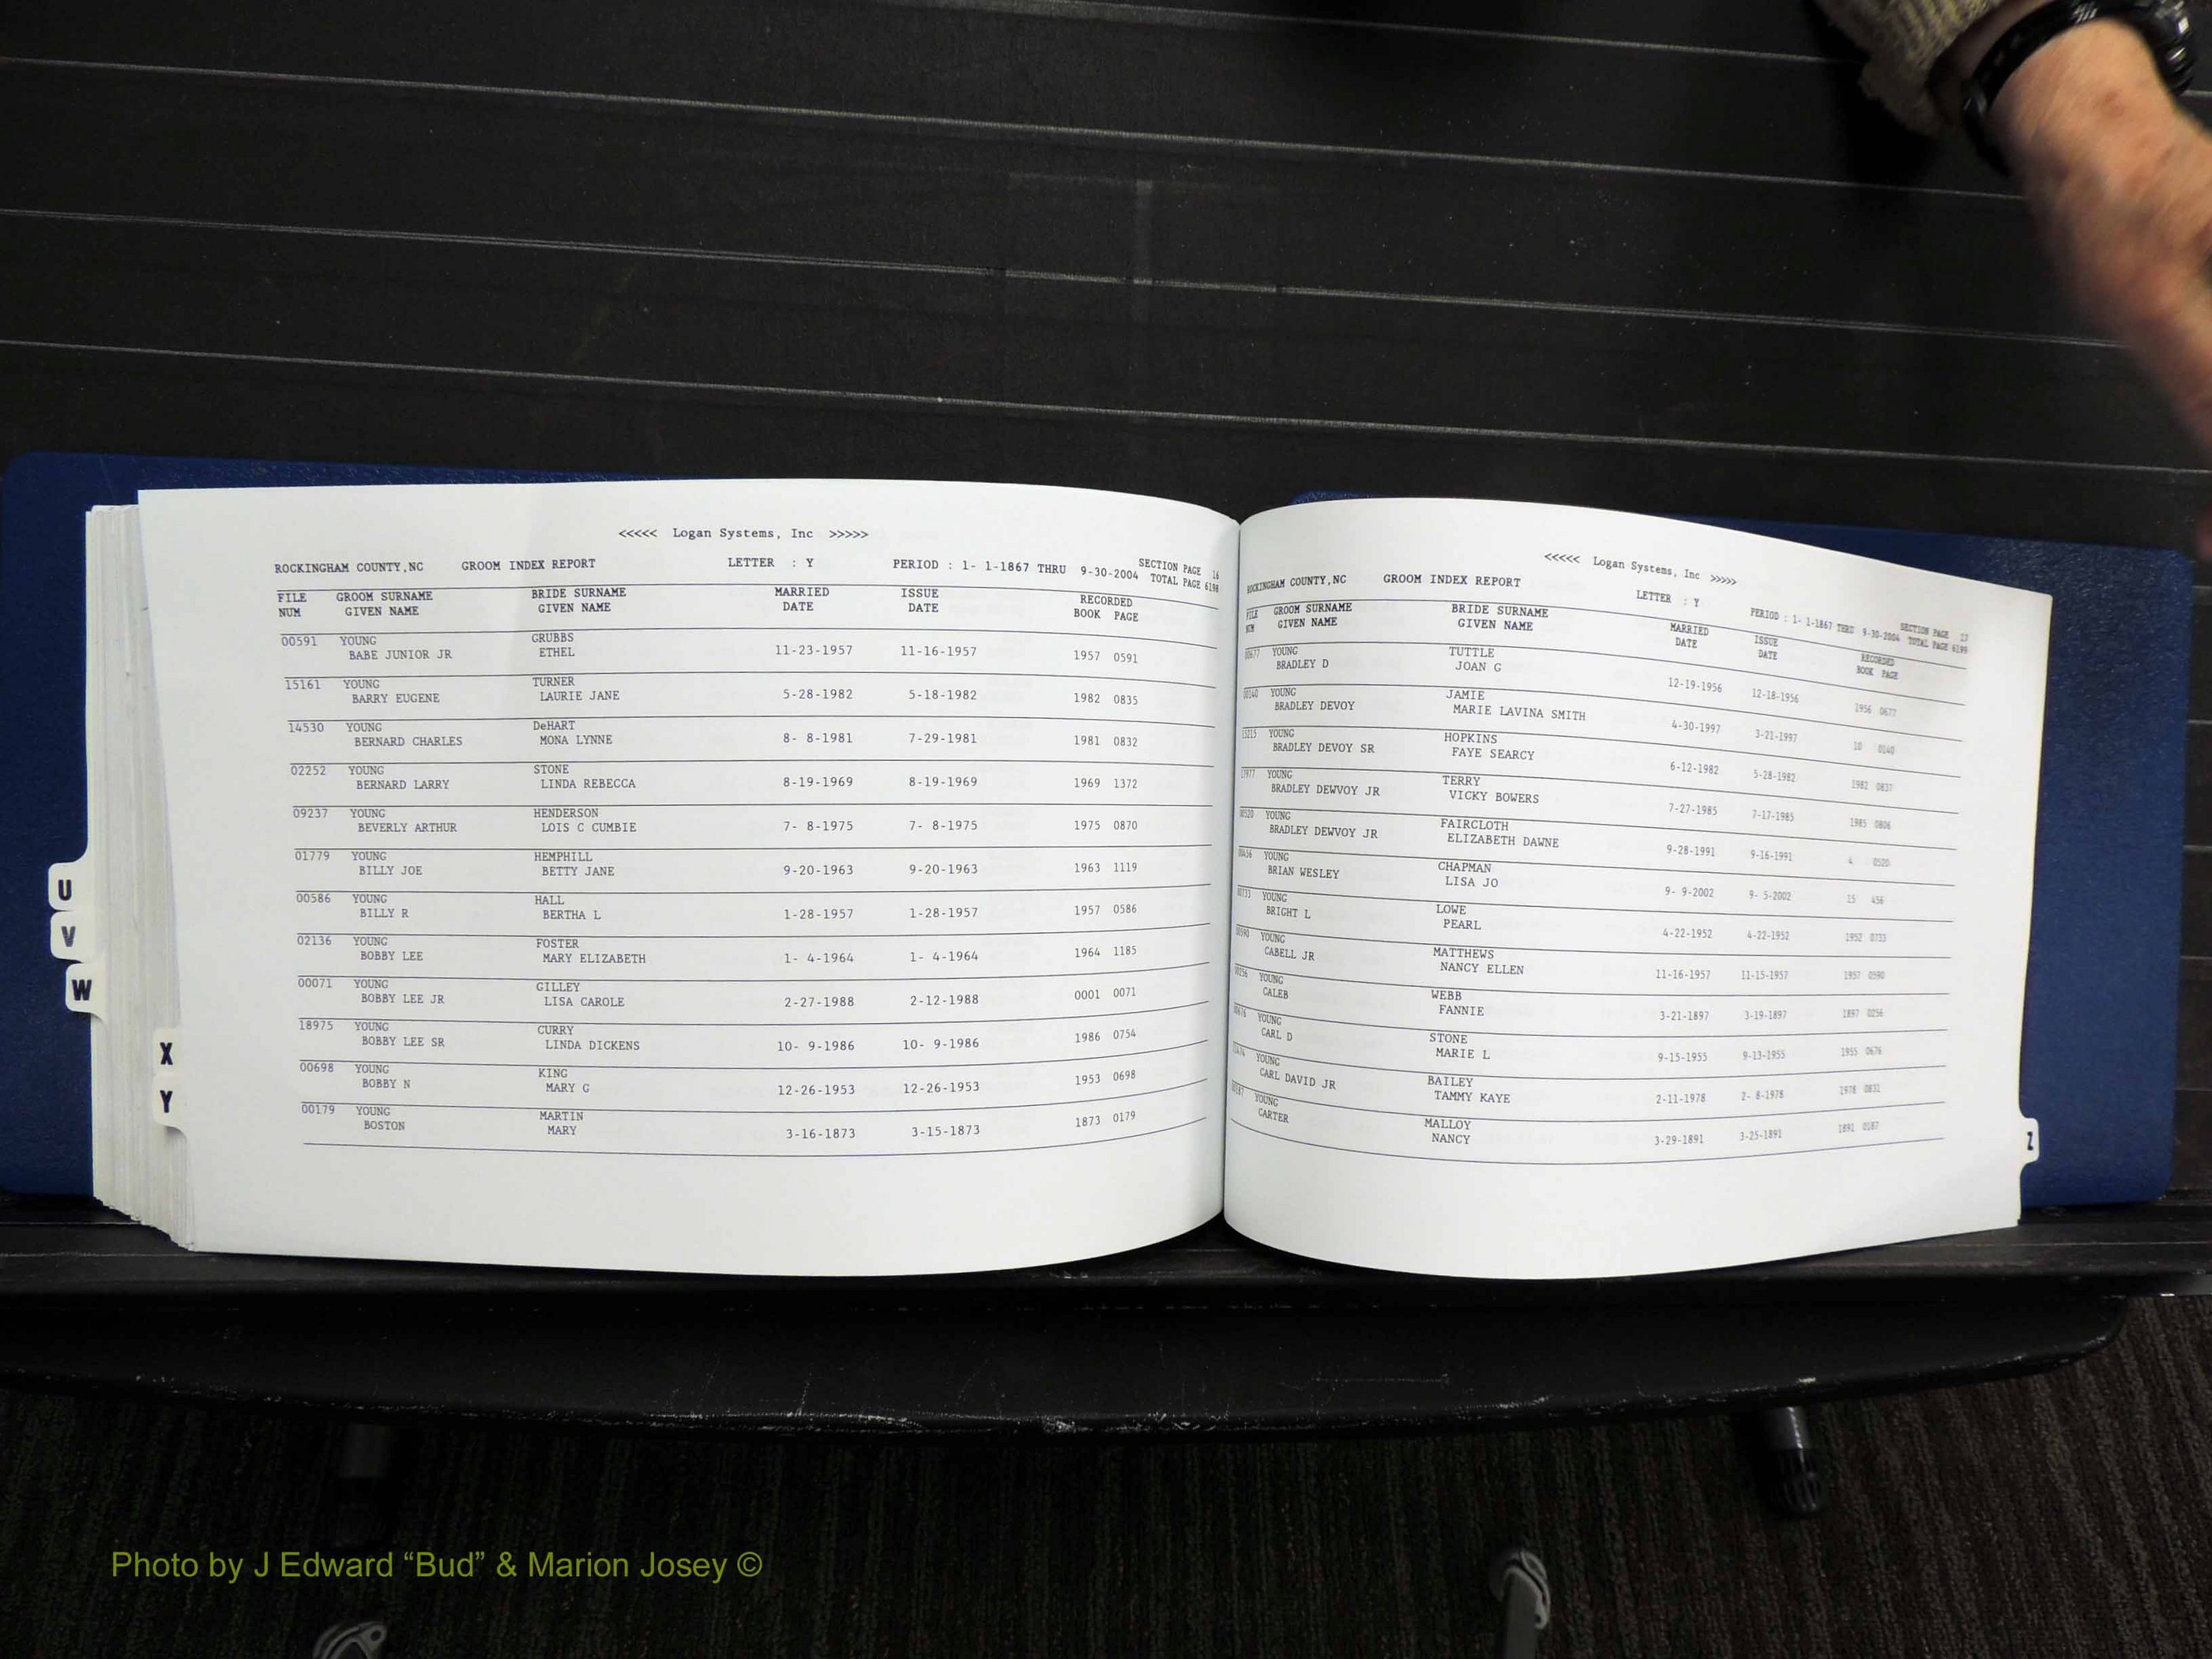 <<<<< Logan Systems, Inc >>>>>
ROCKINGHAM COUNTY,NC GROOM INDEX REPORT LETTER : Y PERIOD : 1- 1-1867 THRU 9-30-2004 SECTION PAGE 16
TOTAL PAGE 6198
FILE GROOM SURNAME BRIDE SURNAME MARRIED ISSUE RECORDED
NUM GIVEN NAME GIVEN NAME DATE DATE BOOK PAGE
00591 YOUNG GRUBBS
BABE JUNIOR JR ETHEL 11-23-1957 11-16-1957 1957 0591
15161 YOUNG TURNER
BARRY EUGENE LAURIE JANE 5-28-1982 5-18-1982 1982 0835
14530 YOUNG DeHART
BERNARD CHARLES MONA LYNNE 8- 8-1981 7-29-1981 1981 0832
02252 YOUNG STONE
BERNARD LARRY LINDA REBECCA 8-19-1969 8-19-1969 1969 1372
09237 YOUNG HENDERSON
BEVERLY ARTHUR LOIS C CUMBIE 7- 8-1975 7- 8-1975 1975 0870
01779 YOUNG HEMPHILL
BILLY JOE BETTY JANE 9-20-1963 9-20-1963 1963 1119
00586 YOUNG HALL
BILLY R BERTHA L 1-28-1957 1-28-1957 1957 0586
02136 YOUNG FOSTER
BOBBY LEE MARY ELIZABETH 1- 4-1964 1- 4-1964 1964 1185
00071 YOUNG GILLEY
BOBBY LEE JR LISA CAROLE 2-27-1988 2-12-1988 0001 0071
18975 YOUNG CURRY
BOBBY LEE SR LINDA DICKENS 10- 9-1986 10- 9-1986 1986 0754
00698 YOUNG KING
BOBBY N MARY G 12-26-1953 12-26-1953 1953 0698
00179 YOUNG MARTIN
BOSTON MARY 3-16-1873 3-15-1873 1873 0179
U
V
W
X
Y
<<<<< Logan Systems, Inc >>>>>
ROCKINGHAM COUNTY,NC GROOM INDEX REPORT LETTER : Y PERIOD : 1- 1-1867 THRU 9-30-2004 SECTION PAGE 17
TOTAL PAGE 6199
FILE GROOM SURNAME BRIDE SURNAME MARRIED ISSUE RECORDED
NUM GIVEN NAME GIVEN NAME DATE DATE BOOK PAGE
00677 YOUNG TUTTLE
BRADLEY D JOAN G 12-19-1956 12-18-1956 1956 0677
00140 YOUNG JAMIE
BRADLEY DEVOY MARIE LAVINA SMITH 4-30-1997 3-21-1997 10 0140
15215 YOUNG HOPKINS
BRADLEY DEVOY SR FAYE SEARCY 6-12-1982 5-28-1982 1982 0837
17977 YOUNG TERRY
BRADLEY DEWVOY JR VICKY BOWERS 7-27-1985 7-17-1985 1985 0806
00520 YOUNG FAIRCLOTH
BRADLEY DEWVOY JR ELIZABETH DAWNE 9-28-1991 9-16-1991 4 0520
00456 YOUNG CHAPMAN
BRIAN WESLEY LISA JO 9- 9-2002 9- 5-2002 15 456
00733 YOUNG LOWE
BRIGHT L PEARL 4-22-1952 4-22-1952 1952 0733
00590 YOUNG MATTHEWS
CABELL JR NANCY ELLEN 11-16-1957 11-15-1957 1957 0590
00256 YOUNG WEBB
CALEB FANNIE 3-21-1897 3-19-1897 1897 0256
00676 YOUNG STONE
CARL D MARIE L 9-15-1955 9-13-1955 1955 0676
YOUNG BAILEY
CARL DAVID JR TAMMY KAYE 2-11-1978 2- 8-1978 1978 0831
00187 YOUNG MALLOY
CARTER NANCY 3-29-1891 3-25-1891 1891 0187
Z
Photo by J Edward “Bud” & Marion Josey ©